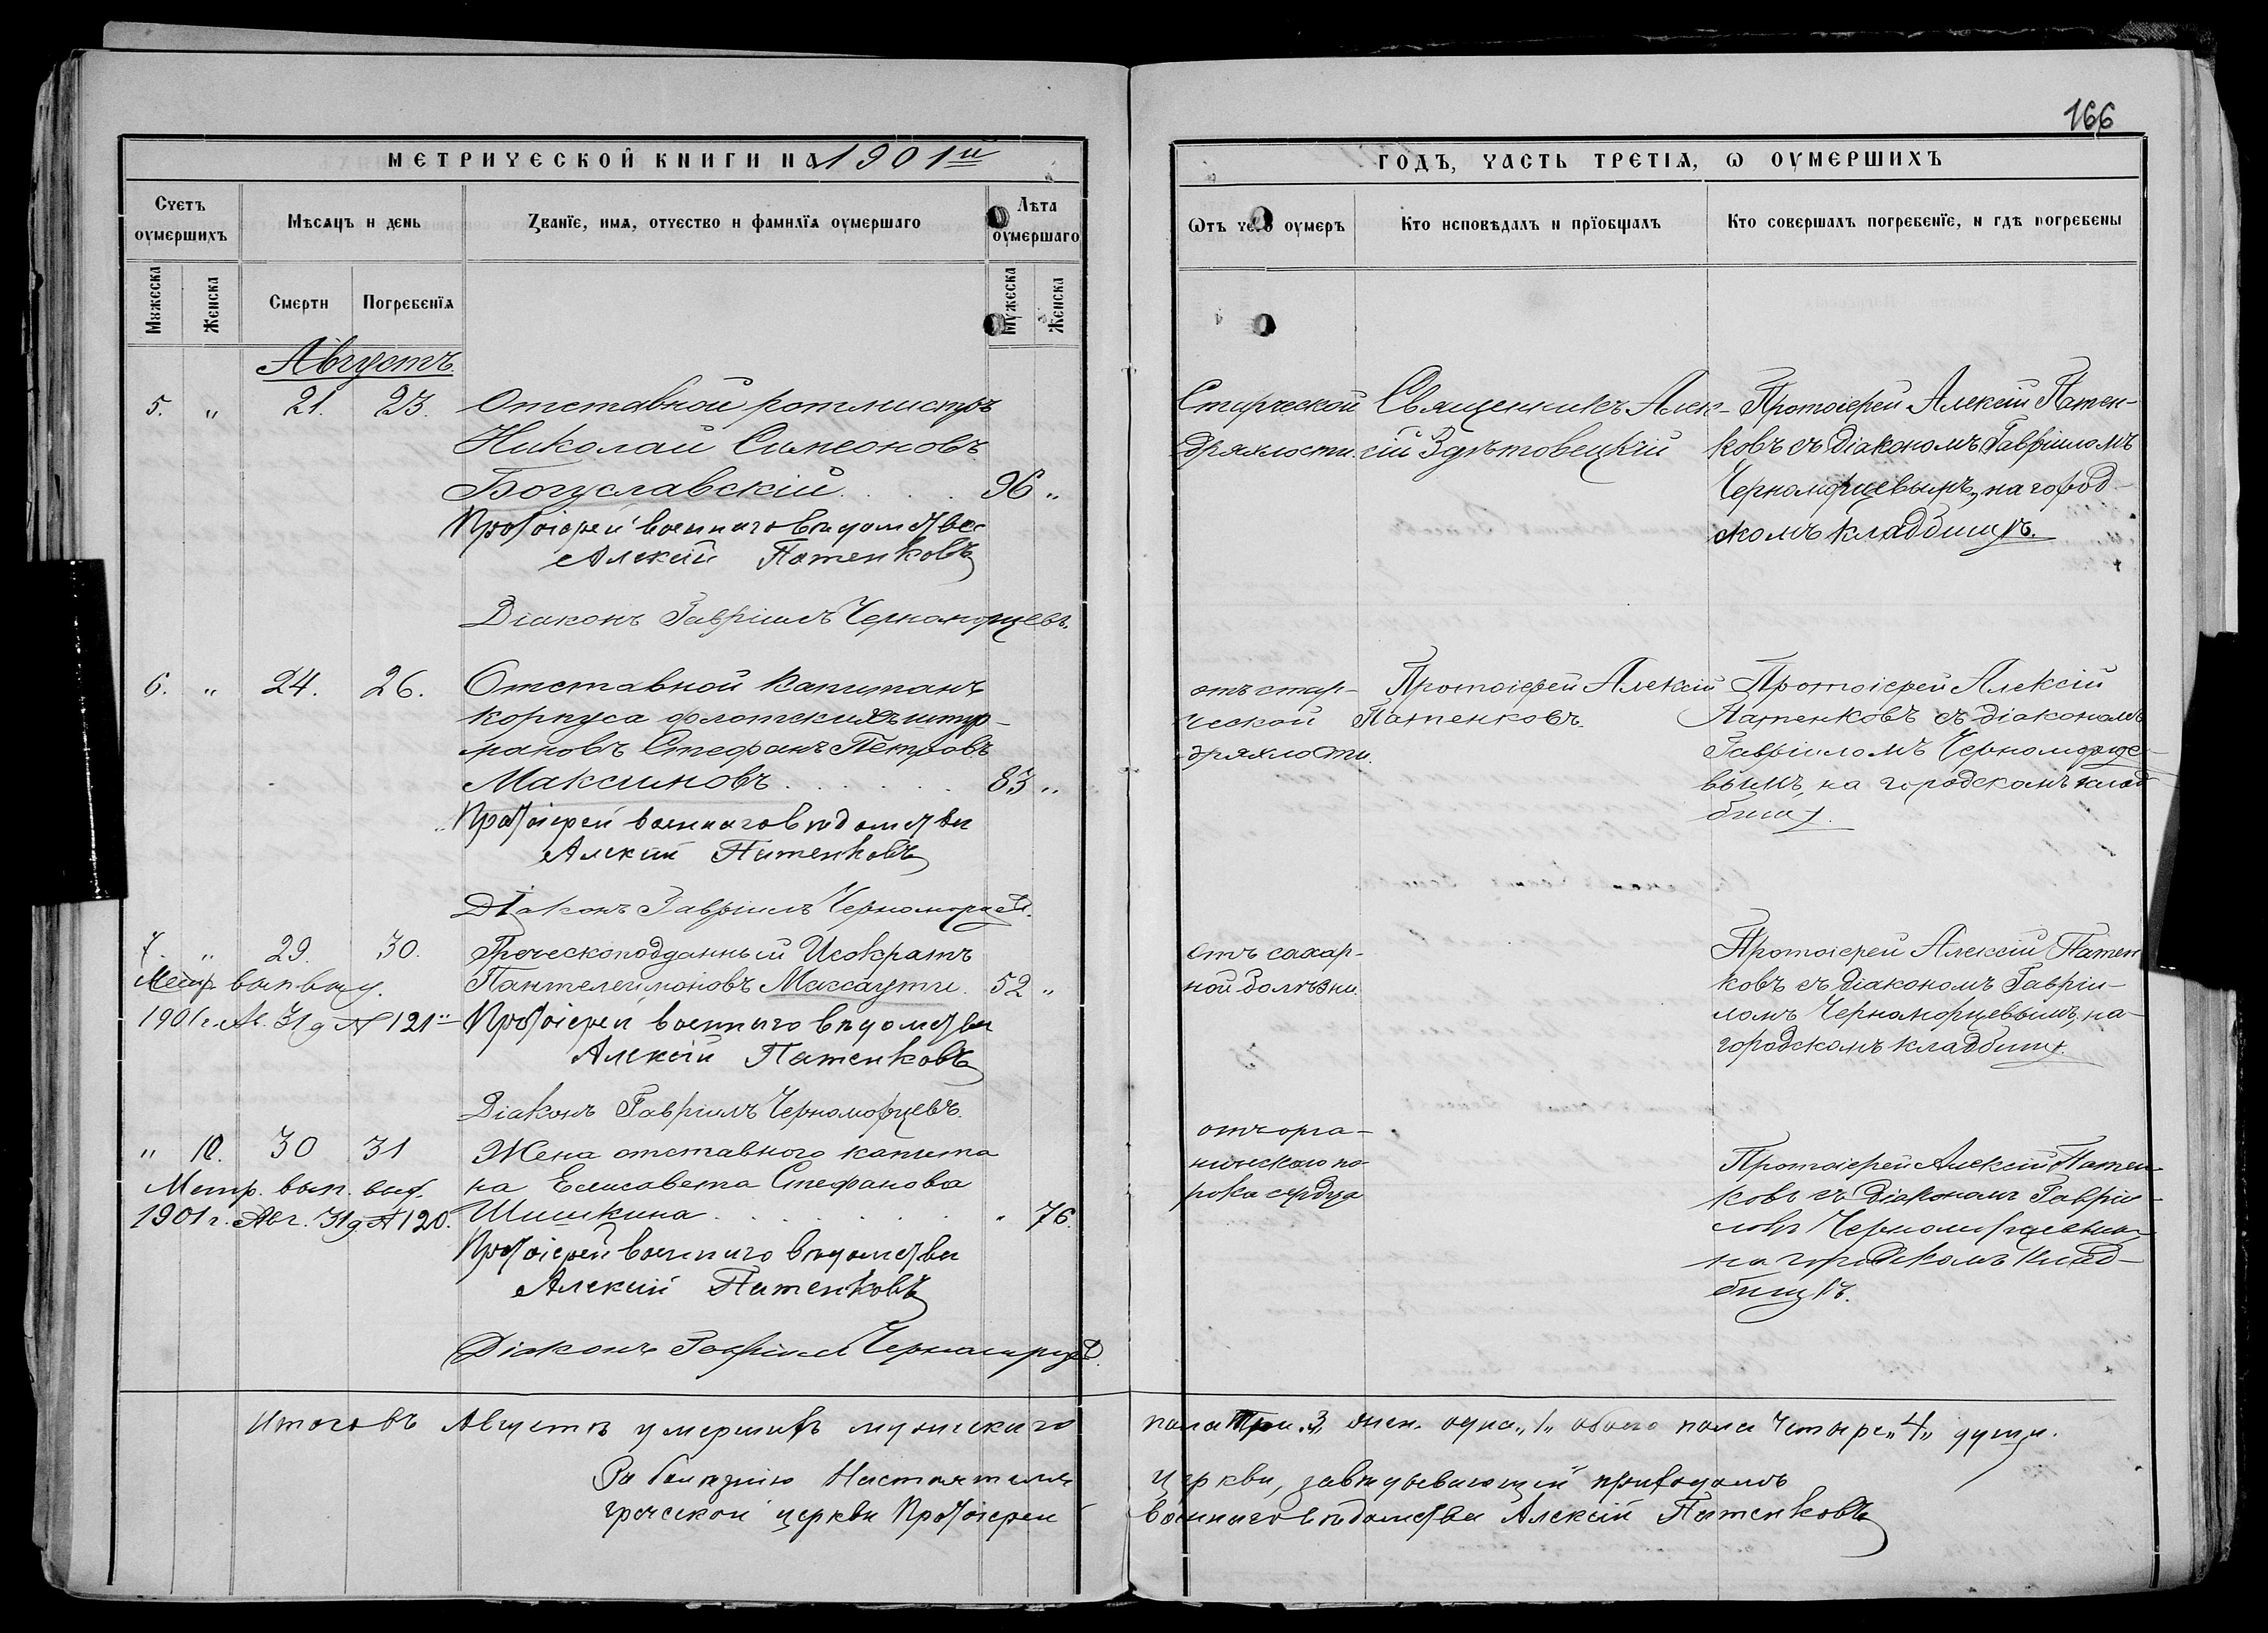 166
МЕТРИЧЕСКОЙ КНИГИ НА 1901й
ГОДЪ, ЧАСТЬ ТРЕТІѦ, Ѡ ОУМЕРШИХЪ
Счетъ оумершихъ
Мѣсѧцъ и день
Званїе, имѧ, отчество и фамилїа оумершаго
Лѣта оумершаго
Мꙋжеска
Женска
Смерти
Погребенїѧ
Мꙋжеска
Женска
Ѿтъ чего оумеръ
Кто исповѣдалъ и прїобщалъ
Кто совершалъ погребенїе, и гдѣ погребены
Августъ
5. " 21. 23. Отставной ротмистръ
Николай Симеоновъ
Богуславскій. . . . 96 "
Протоіерей военнаго вѣдомства
Алексій Патенковъ
Діаконъ Гавріилъ Черноморцевъ.
Старческой
дряхлости.
Священникъ Алек-
сій
Протоіерей Алексій Патен-
ковъ съ діакономъ Гавріиломъ
Черноморцевымъ, на город-
скомъ кладбищѣ.
6. " 24. 26. Отставной капитанъ
корпуса флотскихъ штур-
мановъ Стефанъ Петровъ
Максимовъ . . . . . . 83 "
Протоіерей военнаго вѣдомства
Алексій Патенковъ
Діаконъ Гавріилъ Черноморцевъ.
отъ стар-
ческой
дряхлости.
Протоіерей Алексій
Патенковъ.
Протоіерей Алексій
Патенковъ съ діакономъ
Гавріиломъ Черноморце-
вымъ, на городскомъ клад-
бищѣ.
7. " 29. 30. Греческоподданный Исократъ
Метр. вып. выд. Пантелеимоновъ Массаути. 52 "
1901 г. Ав. 31 д № 121" Протоіерей военнаго вѣдомства
Алексій Патенковъ
Діаконъ Гавріилъ Черноморцевъ.
отъ сахар-
ной болѣзни.
Протоіерей Алексій Патен
ковъ съ діакономъ Гаврiи-
ломъ Черноморцевымъ, на
городскомъ кладбищѣ.
" 10. 30 31 Жена отставного капита
Метр. вып. выд. на Елисавета Стефанова
1901 г. Авг. 31 д № 120. Шишкина . . . . . . . " 76.
Протоіерей военнаго вѣдомства
Алексій Патенковъ
Діаконъ Гавріилъ Черноморцевъ.
отъ орга-
ническаго по-
рока сердца
Протоіерей Алексій Патен-
ковъ съ діакономъ Гаврiи-
ломъ Черноморцевымъ,
на городскомъ клад-
бищѣ.
Итого въ Августѣ умершихъ мужескаго пола три „3„ жен. одна „1„ обоего пола четыре „4„ души.
За болѣзнію Настоятеля церкви, завѣдывающій приходомъ
греческой церкви Протоіерей военнаго вѣдомства Алексій Патенковъ